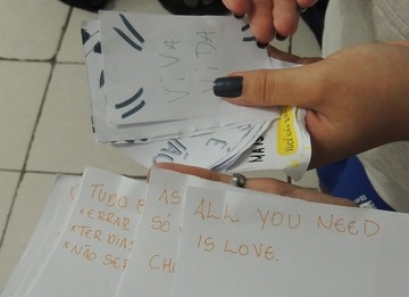 VIVA
VIDA
MAIS
TUDO
*ERRAR
*TER DIAS
*NÃO SER
AS
SÓ
ALL YOU NEED
IS LOVE.